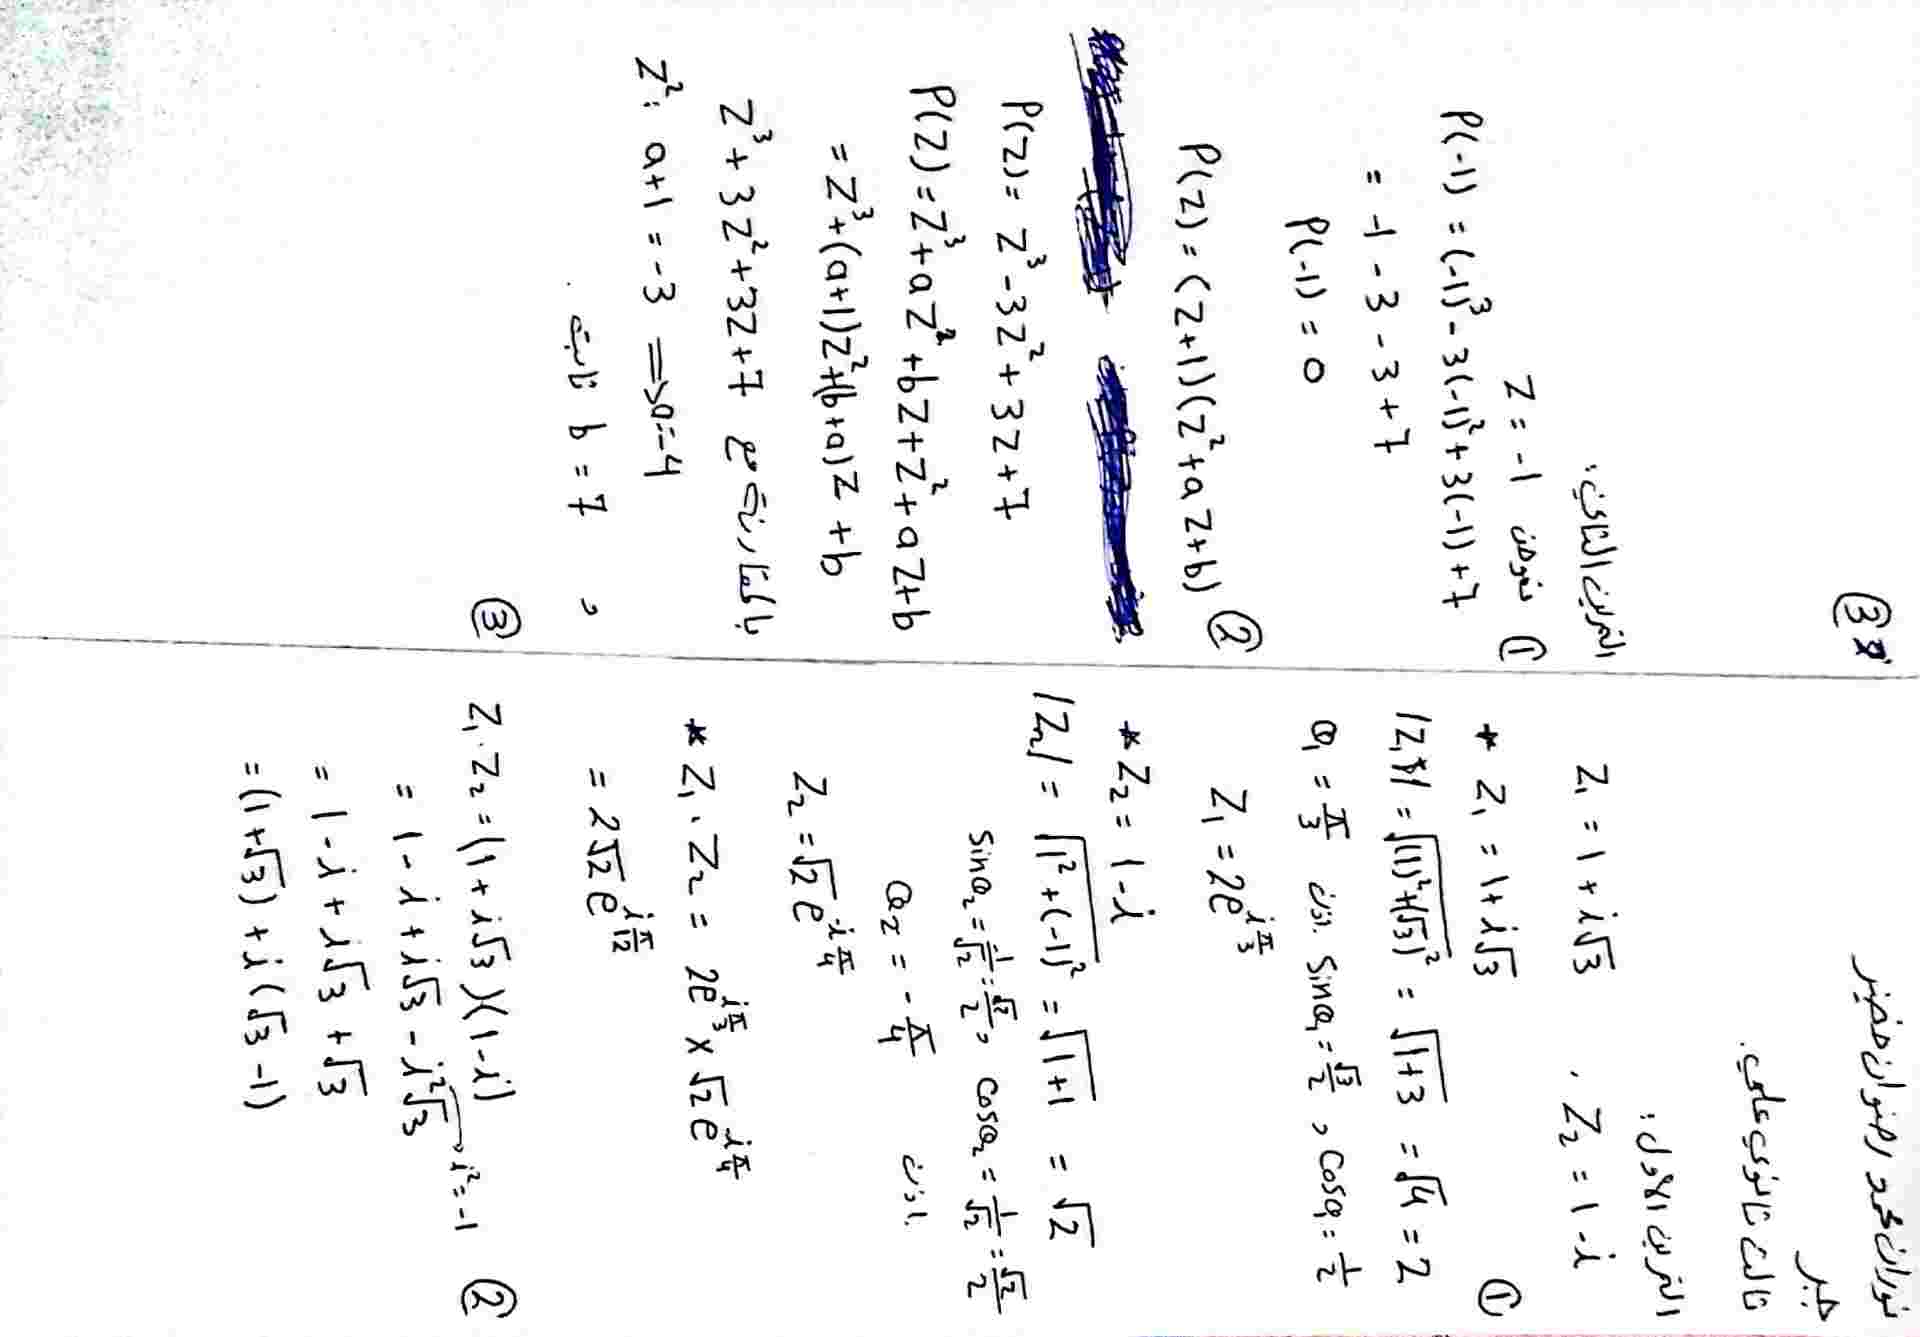 نوران محمد رضوان خضير
جبر
ثالث ثانوي علمي.
التمرين الأول:
Z₁ = 1 + i√3 , Z₂ = 1 - i
①
* Z₁ = 1 + i√3
|Z₁| = √((1)²+(√3)²) = √(1+3) = √4 = 2
θ₁ = π/3 اذن: Sinθ₁ = √3/2 , Cosθ₁ = 1/2
Z₁ = 2e^(iπ/3)
* Z₂ = 1 - i
|Z₂| = √(1² + (-1)²) = √(1+1) = √2
Sinθ₂ = 1/√2 = √2/2 , Cosθ₂ = 1/√2 = √2/2
θ₂ = -π/4 اذن:
Z₂ = √2 e^(-iπ/4)
* Z₁ . Z₂ = 2e^(iπ/3) × √2 e^(iπ/4)
= 2√2 e^(iπ/12)
②
Z₁ . Z₂ = (1 + i√3)(1 - i)
= 1 - i + i√3 - i²√3 → i² = -1
= 1 - i + i√3 + √3
= (1+√3) + i(√3 - 1)
③
التمرين الثاني:
① نعوض Z = -1
P(-1) = (-1)³ - 3(-1)² + 3(-1) + 7
= -1 - 3 - 3 + 7
P(-1) = 0
②
P(Z) = (Z+1)(Z² + aZ + b)
P(Z) = Z³ - 3Z² + 3Z + 7
P(Z) = Z³ + aZ² + bZ + Z² + aZ + b
= Z³ + (a+1)Z² + (b+a)Z + b
بالمقارنة مع Z³ + 3Z² + 3Z + 7
Z²: a+1 = -3 ⇒ a = -4
, b = 7 ثابت .
③